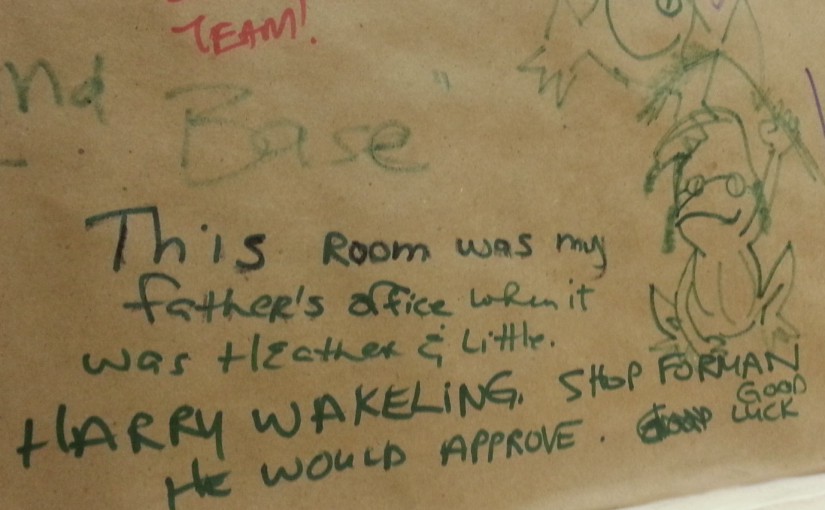 TEAM!
nd Base"
This Room was my
father's office when it
was Heather & Little.
HARRY WAKELING. SHOP FORMAN
HE WOULD APPROVE. GOOD
LUCK